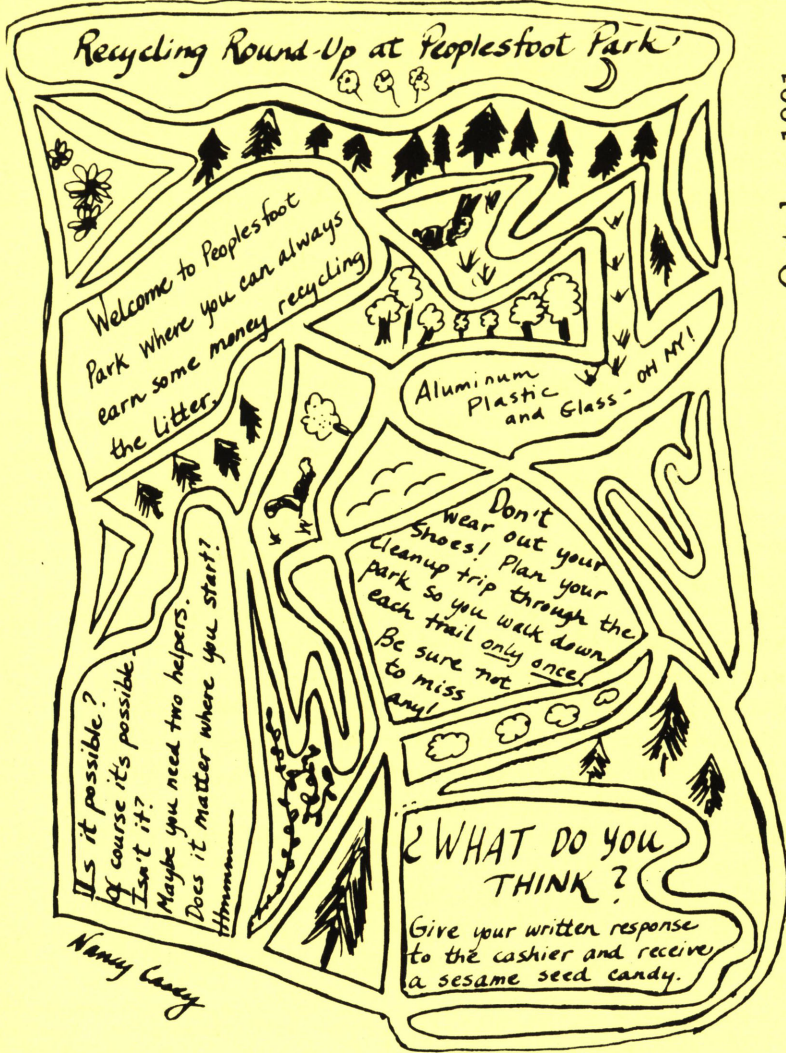 Recycling Round-Up at Peoplesfoot Park
Welcome to Peoplesfoot
Park where you can always
earn some money recycling
the litter.
Aluminum
Plastic
and Glass - OH MY!
Don't
wear out your
Shoes! Plan your
cleanup trip through the
park so you walk down
each trail only once!
Be sure not
to miss
any!
Is it possible?
Of course it's possible.
Isn't it?
Maybe you need two helpers.
Does it matter where you start?
Hmmmm
¿WHAT DO YOU
THINK?
Give your written response
to the cashier and receive
a sesame seed candy.
Nancy Casey